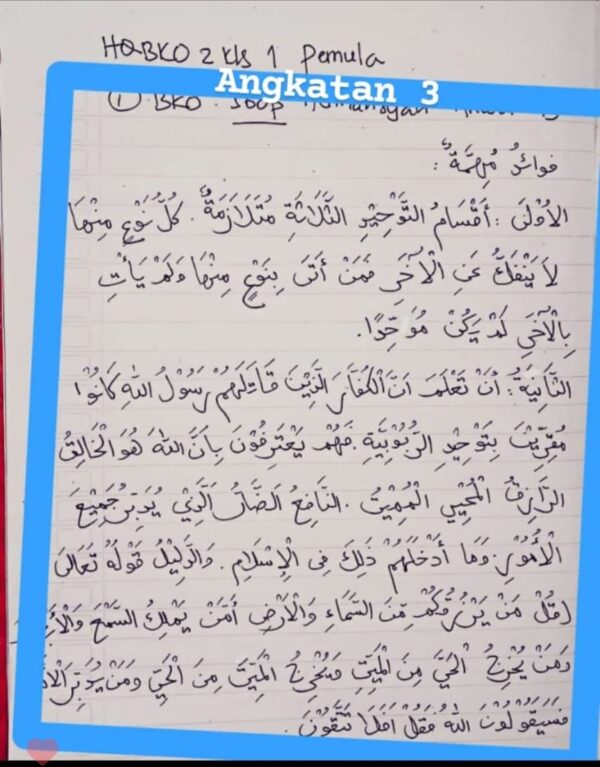 HQBKO 2 Kls 1 Pemula
Angkatan 3
① BKO
فَوَائِدُ مُهِمَّةٌ :
الأُوْلَى : أَقْسَامُ التَّوْحِيْدِ الثَّلَاثَةِ مُتَلَازِمَةٌ . كُلُّ نَوْعٍ مِنْهَا
لاَ يَنْفَكُّ عَنِ الْآخَرِ فَمَنْ أَتَى بِنَوْعٍ مِنْهَا وَلَمْ يَأْتِ
بِالْآخَرِ لَمْ يَكُنْ مُوَحِّدًا .
الثَّانِيَةُ : أَنْ تَعْلَمَ أَنَّ الْكُفَّارَ الَّذِيْنَ قَاتَلَهُمْ رَسُوْلُ اللهِ كَانُوْا
مُقِرِّيْنَ بِتَوْحِيْدِ الرُّبُوْبِيَّةِ . فَهُمْ يَعْتَرِفُوْنَ بِأَنَّ اللهَ هُوَ الْخَالِقُ
الرَّازِقُ الْمُحْيِي الْمُمِيْتُ . النَّافِعُ الضَّارُّ الَّذِيْ يُدَبِّرُ جَمِيْعَ
الْأُمُوْرِ . وَمَا أَدْخَلَهُمْ ذَلِكَ فِى الْإِسْلَامِ . وَالدَّلِيْلُ قَوْلُهُ تَعَالَى
(قُلْ مَنْ يَرْزُقُكُمْ مِّنَ السَّمَاءِ وَالْأَرْضِ أَمَّنْ يَمْلِكُ السَّمْعَ
وَمَنْ يُخْرِجُ الْحَيَّ مِنَ الْمَيِّتِ وَيُخْرِجُ الْمَيِّتَ مِنَ الْحَيِّ وَمَنْ يُدَبِّرُ
فَسَيَقُوْلُوْنَ اللهُ فَقُلْ أَفَلَا تَتَّقُوْنَ .